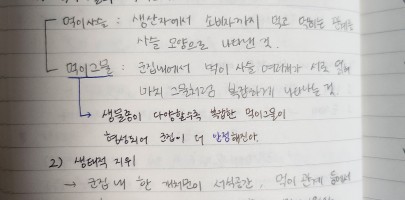 먹이사슬 : 생산자에서 소비자까지 먹고 먹히는 관계를
사슬 모양으로 나타낸 것.
먹이그물 : 군집내에서 먹이 사슬 여러개가 서로 얽혀
마치 그물처럼 복잡하게 나타나는 것.
↳ 생물종이 다양할수록 복잡한 먹이그물이
형성되어 군집이 더 안정해진다.
2) 생태적 지위
→ 군집 내 한 개체군이 서식공간, 먹이 관계 등에서